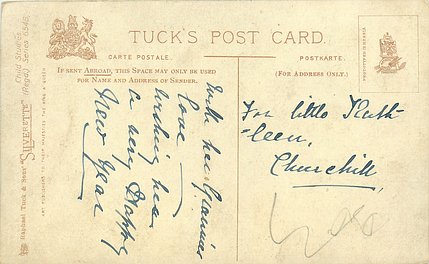 TUCK'S POST CARD.
CARTE POSTALE.
POSTKARTE.
IF SENT ABROAD, THIS SPACE MAY ONLY BE USED
FOR NAME AND ADDRESS OF SENDER.
(FOR ADDRESS ONLY.)
With her Grannies
love
wishing her
a very Happy
New Year
For little Kath-
leen,
Churchill,
Raphael Tuck & Sons' "SILVERETTE" (Regd.) Series 6545.
Child Studies.